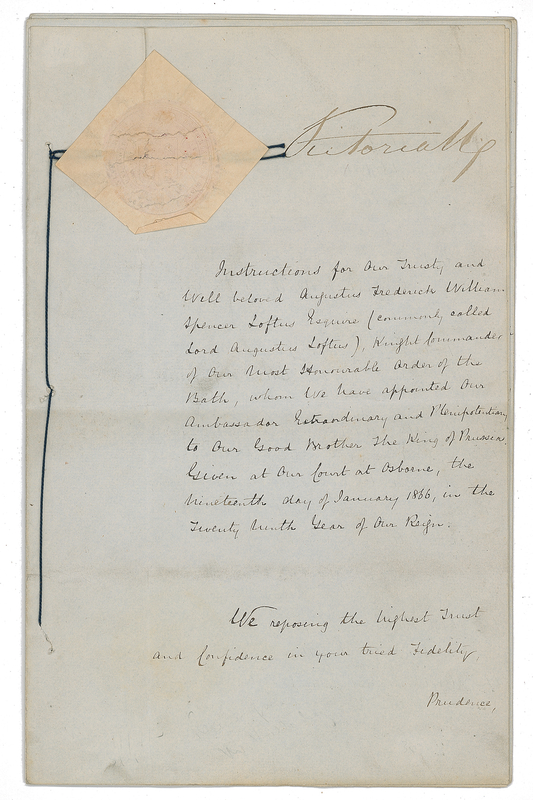 Victoria R
Instructions for Our Trusty and
Well beloved Augustus Frederick William
Spencer Loftus Esquire (commonly called
Lord Augustus Loftus), Knight Commander
of Our Most Honourable Order of the
Bath, whom We have appointed Our
Ambassador Extraordinary and Plenipotentiary
to Our Good Brother The King of Prussia.
Given at Our Court at Osborne, the
Nineteenth day of January 1866, in the
Twenty Ninth Year of Our Reign.
We reposing the highest Trust
and Confidence in your tried Fidelity,
Prudence,